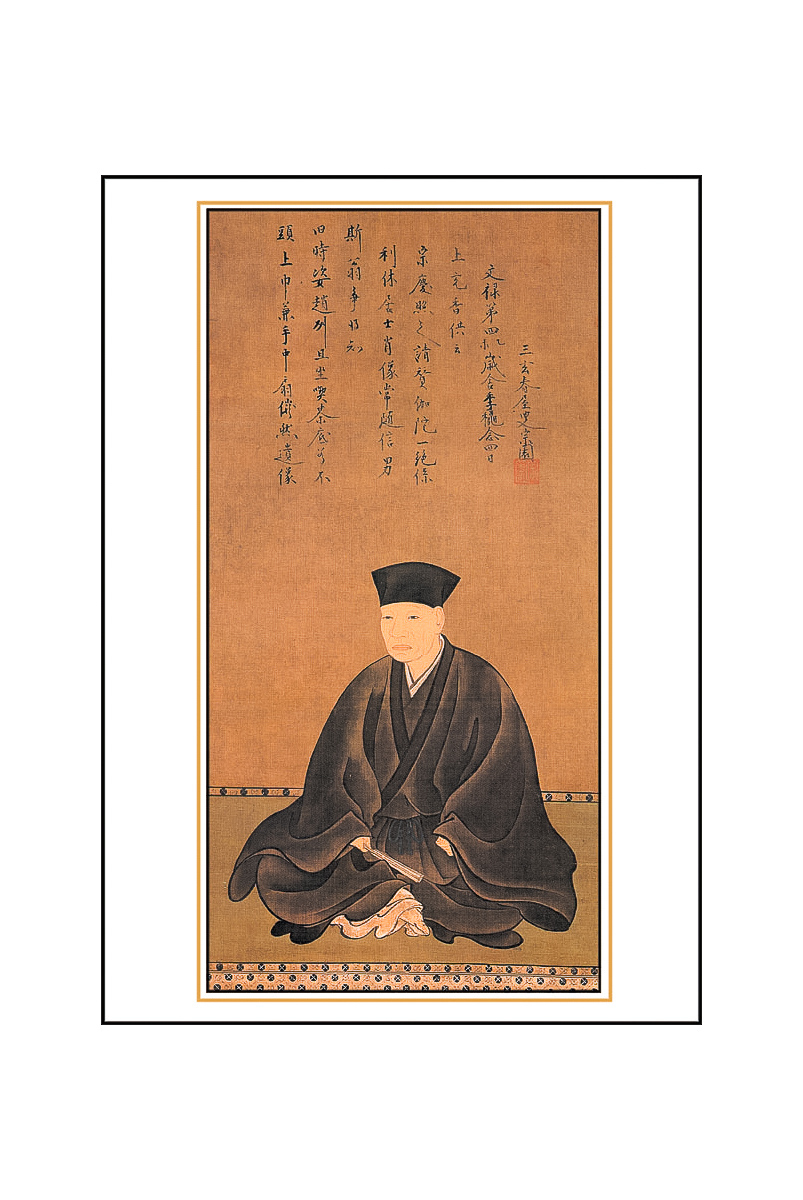 頭上巾兼手中扇儼然遺像
旧時姿趙州且坐喫茶底若不
斯翁争得知
利休居士肖像常随信男
宗慶照之請賛伽陀一絶係
上宅香供云
文禄第四乙未歳舎季穐念四日
三玄春屋叟宗園